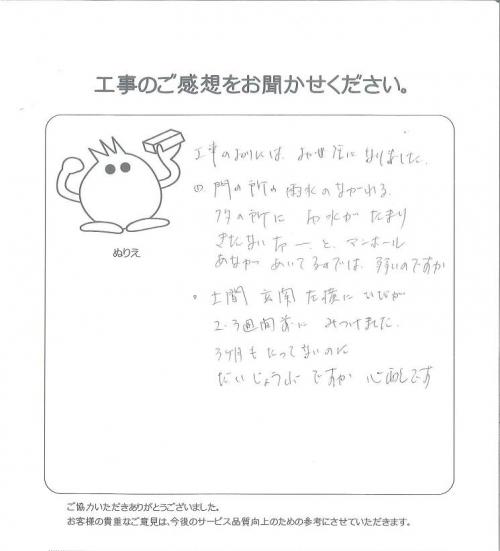 工事のご感想をお聞かせください。
工事の折には、お世話になりました。
門の所の雨水のながれる
フタの所に 雨水がたまり
きたないなーと、マンホール
あながあいてるのでは ないのですか
・土間 玄関 左横に ひびが
2・3週間前に みつけました。
3ヶ月もたってないのに
だいじょうぶですか 心配です
ぬりえ
ご協力いただきありがとうございました。
お客様の貴重なご意見は、今後のサービス品質向上のための参考にさせていただきます。